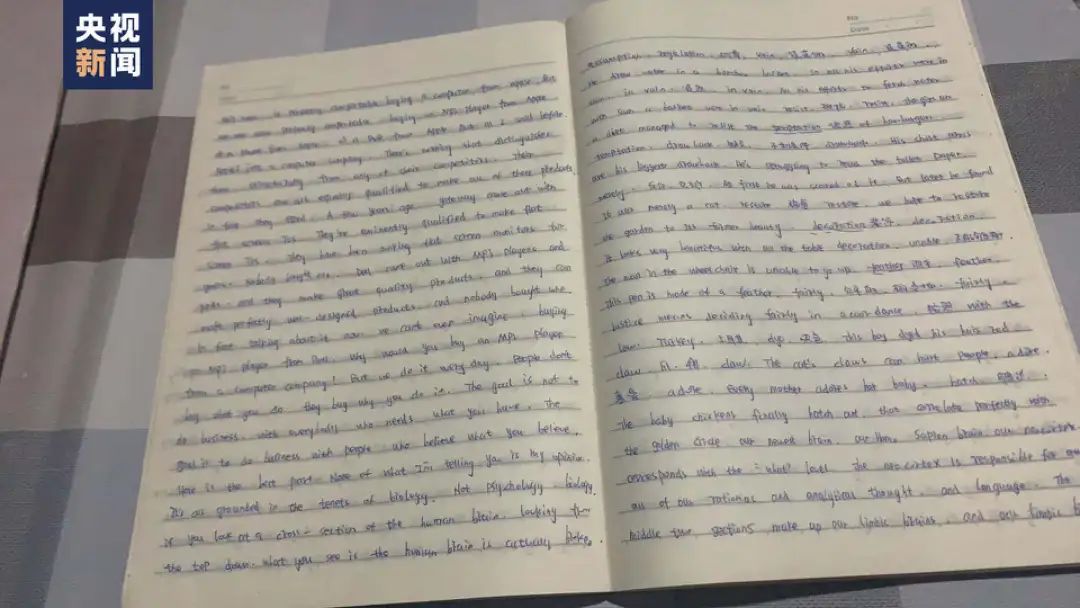 央视
新闻
No
Date
this room is perfectly comfortable buying a computer from Apple. But
we're also perfectly comfortable buying an MP3 player from Apple
or a phone from Apple. or a DVR from Apple. But as I said before
Apple's just a computer company. There's nothing that distinguishes
them structurally from any of their competitors. Their
competitors are all equally qualified to make all of these products.
in fact they tried. A few years ago gateway came out with
flat screen TVs. They're eminently qualified to make flat
screen TVs. They have been making flat screen monitors for
years. nobody bought one. Dell came out with MP3 players and
PDAs. and they make great quality products. and they can
make perfectly well-designed products. and nobody bought one.
In fact talking about it now we can't even imagine buying
an MP3 player from Dell. Why would you buy an MP3 player
from a computer company? But we do it every day. People don't
buy what you do they buy why you do it. The goal is not to
do business with everybody who needs what you have. The
goal is to do business with people who believe what you believe.
Here is the best part. None of what I'm telling you is my opinion.
It's all grounded in the tenets of biology. Not psychology. biology.
if you look at a cross-section of the human brain. looking from
the top down. what you see is the human brain is actually broken
vain
he draw water in a bamboo basket. so all his efforts were in
vain. in vain. in vain. All his efforts to fetch water
with such a basket were in vain. resist. 抵抗. resist. the girl on
a diet managed to resist the temptation 诱惑 of hamburger.
temptation. drawback 缺点 drawback. His chest
are his biggest drawback. He's struggling to reach the toilet paper.
merely. 仅仅 At first he was scared of it. But later he found
it was merely a cat. restore 恢复 restore. we have to restore
the garden to its former beauty. decoration 装饰. decoration.
It looks very beautiful with all the table decoration. unable
The man in the wheelchair is unable to go up. feather 羽毛. feather.
this pen is made of a feather. fairly. fairly.
Justice means deciding fairly in accordance with the
law. Turkey. 土耳其. dye. 染色. This boy dyed his hair red
claw. 爪. claw. The cat's claws can hurt people. adore.
adore. Every mother adores her baby. hatch
The baby chickens finally hatch out. that correlate perfectly with
the golden circle. our newest brain. our Homo Sapien brain. our neocortex
corresponds with the "what" level. The neocortex is responsible for our
all of our rational and analytical thought. and language. The
middle two sections make up our limbic brains. and our limbic b